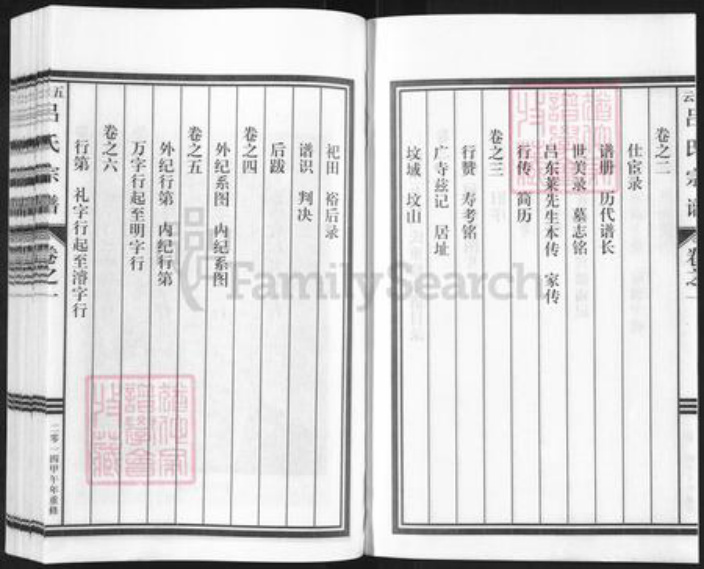 卷之二
仕宦录
谱册 历代谱长
世美录 墓志铭
吕东莱先生本传 家传
行传 简历
卷之三
行赞 寿考铭
广寺兹记 居址
坟域 坟山
祀田 裕后录
谱识 判决
后跋
卷之四
外纪系图 内纪系图
卷之五
外纪行第 内纪行第
万字行起至明字行
卷之六
行第 礼字行起至濬字行
吕氏宗谱
卷之一
二零一四甲午年重修
FamilySearch